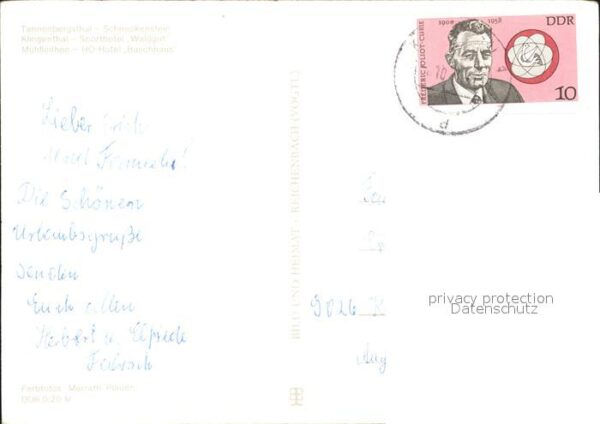 Tannenbergsthal - Schneckenstein
Klingenthal - Sporthotel "Waldgut"
Mühlleithen - HO-Hotel "Buschhaus"
1900 1958
DDR
FRÉDÉRIC JOLIOT-CURIE
10
d
Lieber Erich
und Familie!
Die Schönen
Urlaubsgrüße
senden
Euch allen
Herbert u. Elfriede
BILD UND HEIMAT · REICHENBACH (VOGTL)
9026 K
privacy protection
Datenschutz
Farbfotos: Morrath Plauen
DDR 0,20 M